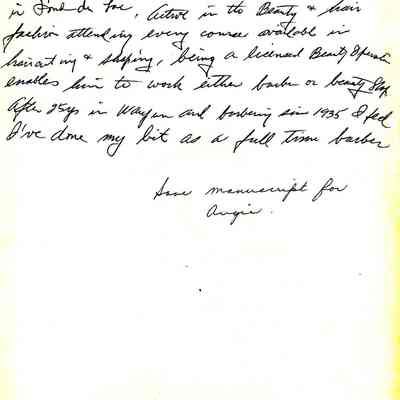 in Fond du Lac, Active in the Beauty & hair
fashion attending every course available in
haircutting & shaping, being a licensed Beauty Operator
enables him to work either barber or beauty Shop
After 25 yrs in Waupun and barbering since 1935 I feel
I've done my bit as a full time barber
Save manuscript for
Angie.